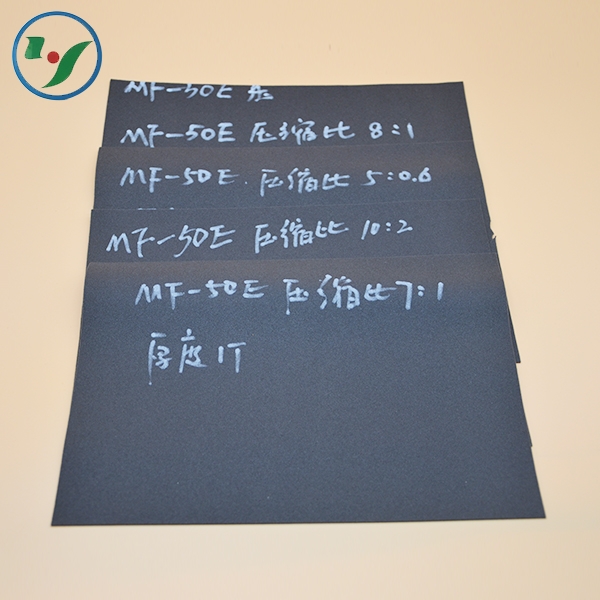 MF-50E
MF-50E 压缩比 8:1
MF-50E. 压缩比 5:0.6
MF-50E 压缩比 10:2
MF-50E 压缩比 7:1
厚度 1T